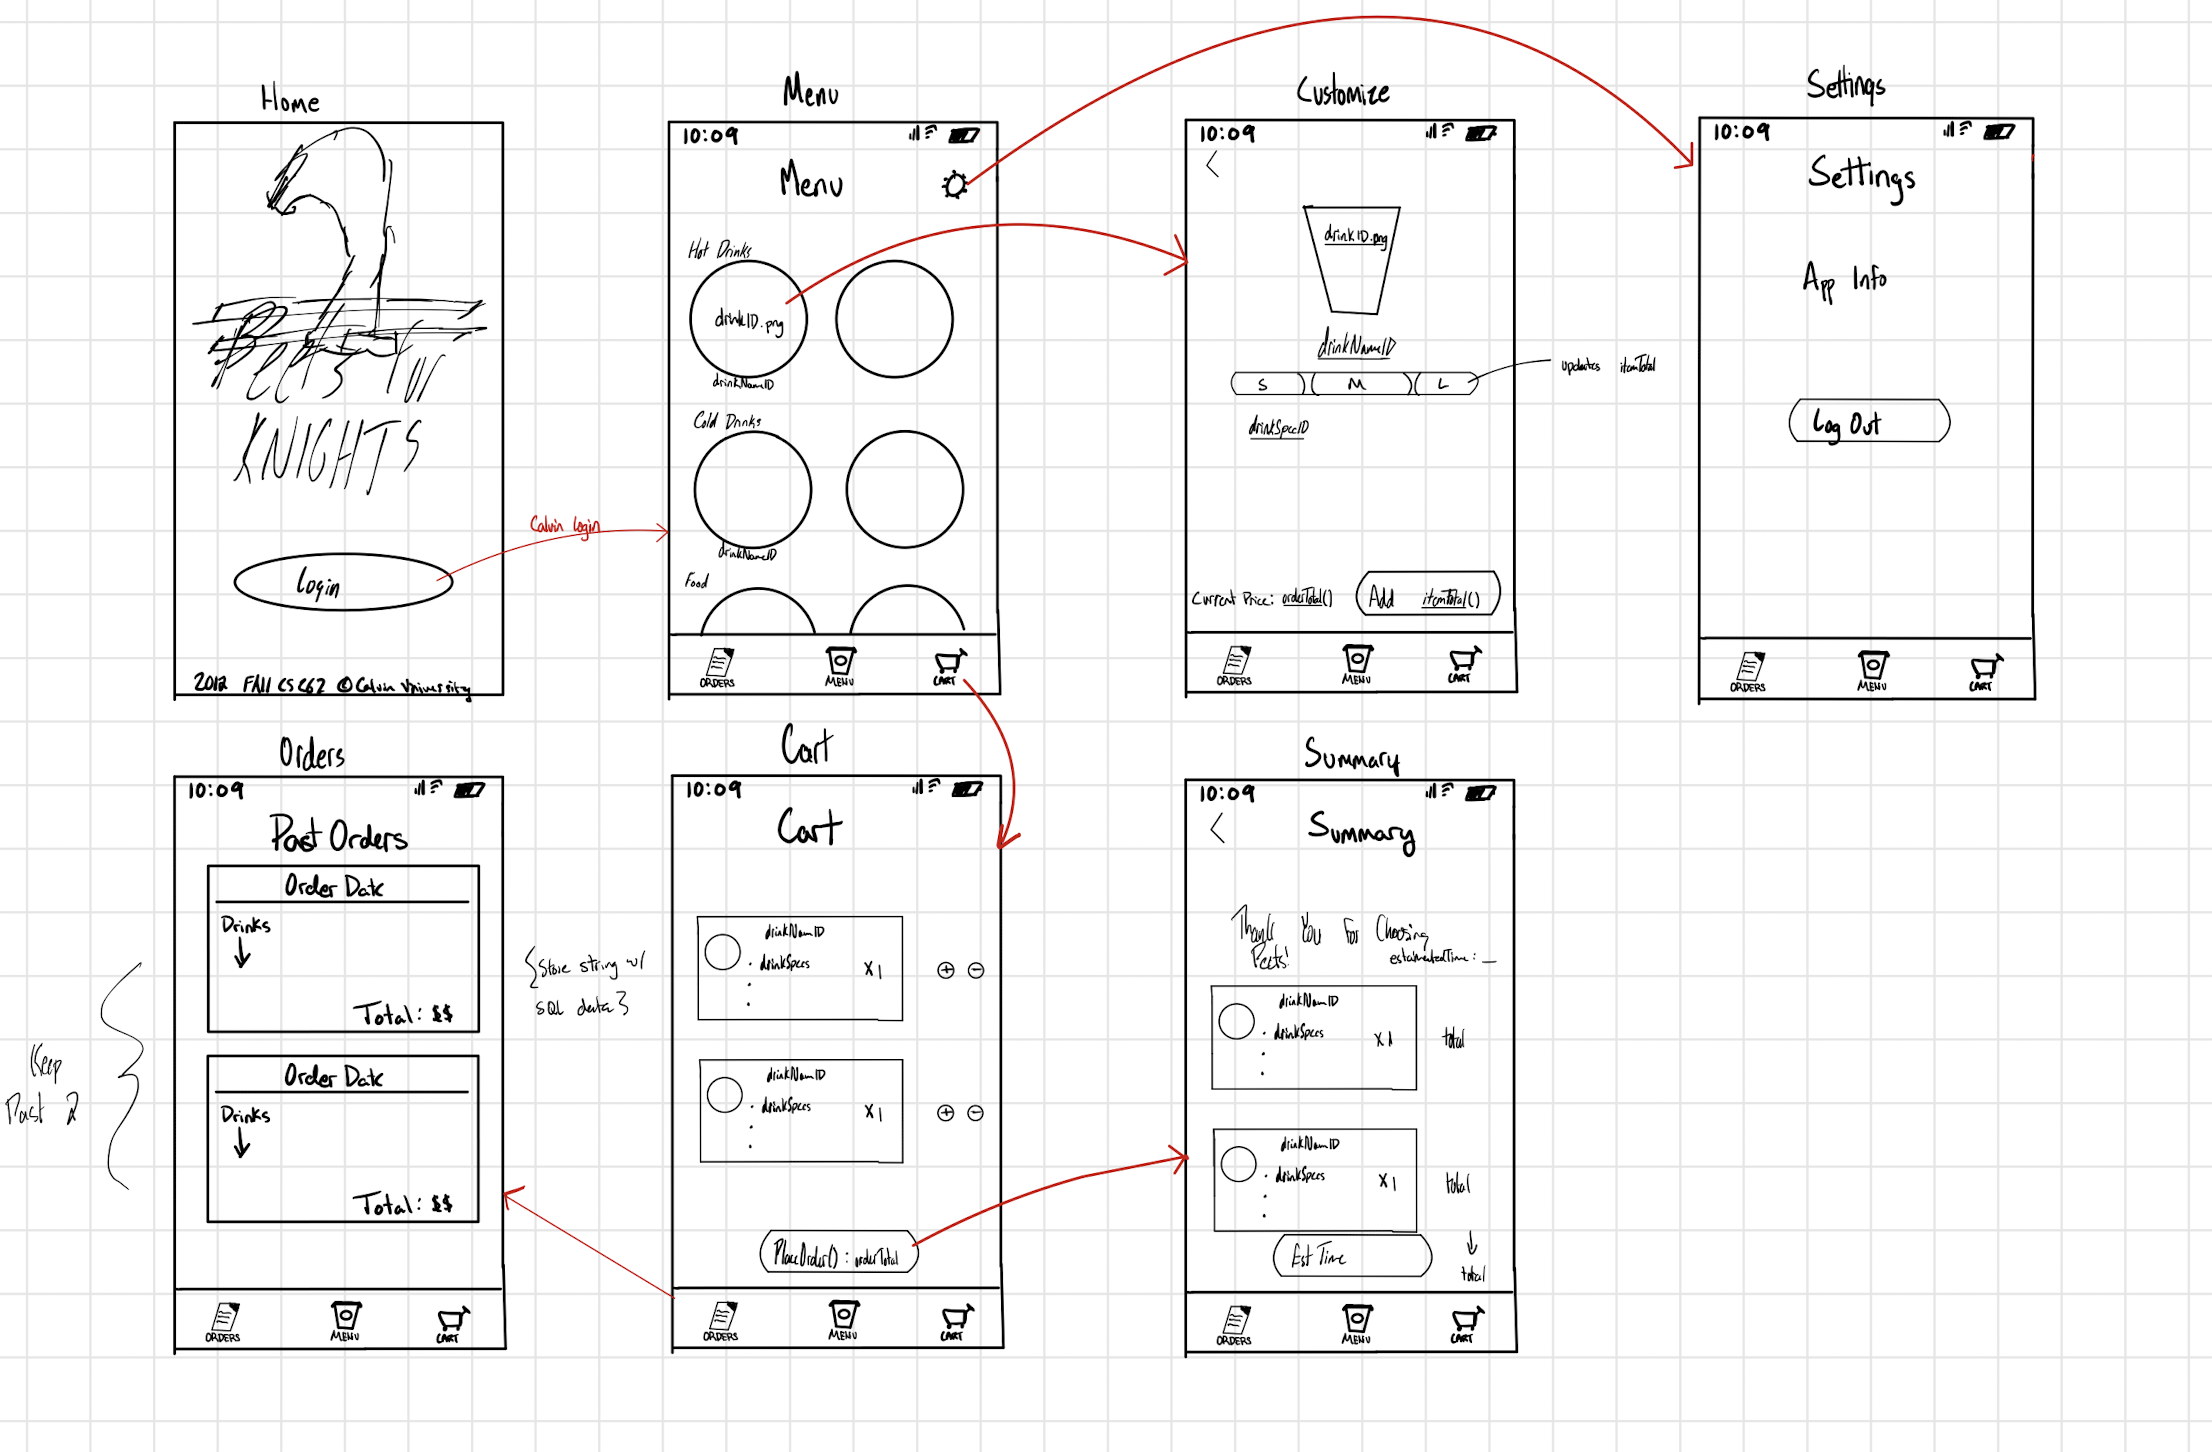 Home
Peet's for
KNIGHTS
Login
Calvin Login
Menu
10:09
Menu
Hot Drinks
drinkID.png
drinkNameID
Cold Drinks
drinkNameID
Food
ORDERS
MENU
CART
Customize
10:09
<
drinkID.png
drinkNameID
S M L
updates itemTotal
drinkSpecID
Current Price: orderTotal()
Add itemTotal()
ORDERS
MENU
CART
Settings
10:09
Settings
App Info
Log Out
ORDERS
MENU
CART
Orders
10:09
Past Orders
Order Date
Drinks
Total: $$
Order Date
Drinks
Total: $$
Keep
Past 2
{Store string w/
SQL data}
ORDERS
MENU
CART
Cart
10:09
Cart
drinkNamID
drinkSpecs
X1
drinkNamID
drinkSpecs
X1
PlaceOrder() : orderTotal
ORDERS
MENU
CART
Summary
10:09
<
Summary
Thank You For Choosing
Peets!
drinkNamID
drinkSpecs
X1
total
drinkNamID
drinkSpecs
X1
total
Est Time
total
ORDERS
MENU
CART